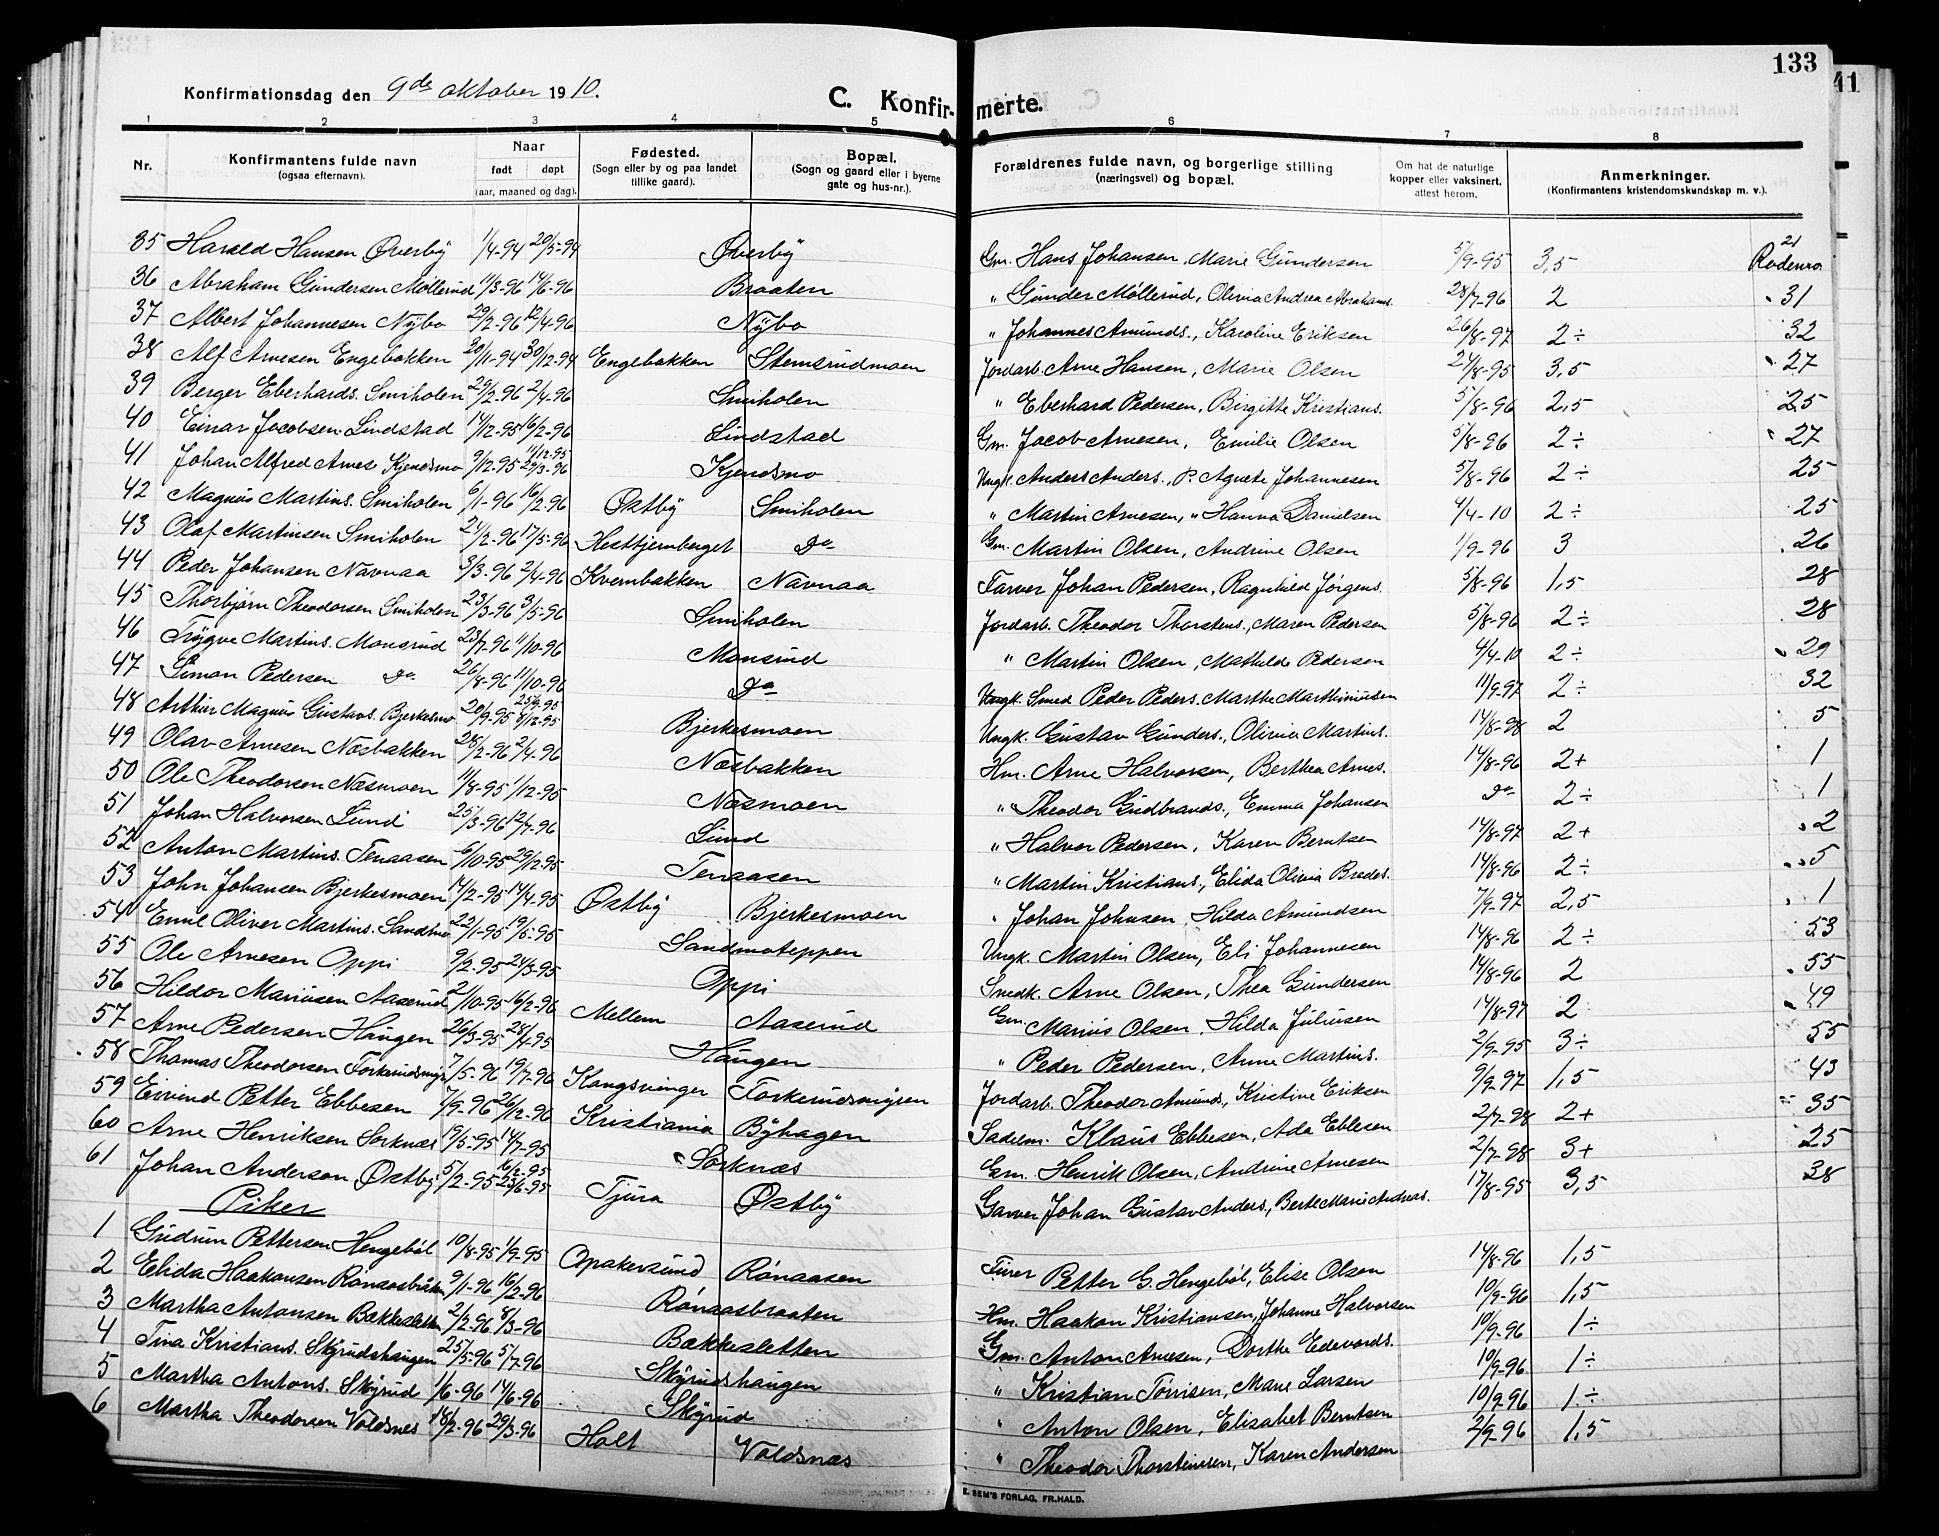 133
41
Konfirmationsdag den 9de oktober 1910.
C. Konfir- merte.
1 2 3 4 5 6 7 8
Nr. Konfirmantens fulde navn (ogsaa efternavn). Naar født døpt (aar, maaned og dag). Fødested. (Sogn eller by og paa landet tillike gaard). Bopæl. (Sogn og gaard eller i byerne gate og hus-nr.). Forældrenes fulde navn, og borgerlige stilling (næringsvei) og bopæl. Om hat de naturlige kopper eller vaksinert, attest herom. Anmerkninger. (Konfirmantens kristendomskundskap m. v.).
35 Harald Hansen Øverby 1/4-94 20/5-94 Øverby Gm. Hans Johansen, Marie Gundersen 5/9-95 3,5 21 Rødenes
36 Abraham Gundersen Møllerud 11/3-96 14/6-96 Braaten " Gunder Møllerud, Olivia Andrea Abrahams. 28/7-96 2 31
37 Albert Johannesen Nybo 29/2-96 12/4-96 Nybo " Johannes Amunds., Karoline Eriksen 26/8-97 2÷ 32
38 Alf Arnesen Engebakken 20/11-94 30/12-94 Engebakken Stemsrudmoen Jordarb. Arne Hansen, Marie Olsen 24/8-95 3,5 27
39 Berger Eberhards. Smiholen 29/2-96 2/4-96 Smiholen " Eberhard Pedersen, Birgitte Kristians. 5/8-96 2,5 25
40 Einar Jacobsen Lindstad 17/12-95 16/2-96 Lindstad Gm. Jacob Arnesen, Emilie Olsen 5/8-96 2÷ 27
41 Johan Alfred Arnes Kjendsmo 9/12-95 11/12-95 29/3-96 Kjendsmo Ungk. Anders Anders., P. Agnete Johannesen 5/8-96 2÷ 25
42 Magnus Martins. Smiholen 6/1-96 16/2-96 Østby Smiholen " Martin Arnesen, " Hanna Danielsen 4/4-10 2÷ 25
43 Olaf Martinsen Smiholen 24/2-96 17/5-96 Hestbjernberget do Gm. Martin Olsen, Andrine Olsen 1/9-96 3 26
44 Peder Johansen Navnaa 3/3-96 2/4-96 Kvernbakken Navnaa Farver Johan Pedersen, Ragnhild Jørgens. 5/8-96 1,5 28
45 Thorbjørn Theodorsen Smiholen 23/3-96 3/5-96 Smiholen Jordarb. Theodor Thorstens., Maren Pedersen 5/8-96 2÷ 28
46 Trygve Martins. Monsrud 23/7-96 11/10-96 Monsrud " Martin Olsen, Mathilde Pedersen 4/4-10 2÷ 29
47 Simon Pedersen do 26/8-96 11/10-96 do Ungk. Smed Peder Peders. Marthe Marthiniusen 11/9-97 2÷ 32
48 Arthur Magnus Gustavs. Bjerkesmo 20/9-95 25/9-95 8/12-95 Bjerkesmoen Ungk. Gustav Gunders., Olivia Martins. 14/8-98 2 5
49 Olav Arnesen Næsbakken 28/2-96 2/4-96 Næsbakken Hm. Arne Halvorsen, Berthea Arnes. 14/8-96 2+ 1
50 Ole Theodorsen Næsmoen 11/8-95 1/12-95 Næsmoen " Theodor Gudbrands., Emma Johansen do 2÷ 1
51 Johan Halvorsen Lund 25/3-96 12/7-96 Lund " Halvor Pedersen, Karen Berntsen 14/8-97 2+ 2
52 Anton Martins. Tenaasen 6/10-95 29/12-95 Tenaasen " Martin Kristians., Elida Olivia Bredes. 14/8-96 2÷ 5
53 John Johansen Bjerkesmoen 14/2-95 14/4-95 Østby Bjerkesmoen " Johan Johnsen, Hilda Amundsen 7/9-97 2,5 1
54 Emil Oliver Martins. Sandmo 22/1-95 19/5-95 Sandmoteppen Ungk. Martin Olsen, Eli Johannesen 14/8-96 2÷ 53
55 Ole Arnesen Oppi 9/2-95 24/3-95 Oppi Snedk. Arne Olsen, Thea Gundersen 14/8-96 2 55
56 Hildor Mariusen Aaserud 2/10-95 16/2-96 Mellem Aaserud Gm. Marius Olsen, Hilda Juliusen 14/8-97 2 49
57 Arne Pedersen Haugen 26/3-95 28/4-95 Haugen " Peder Pedersen, Anne Martins. 2/9-95 3÷ 55
58 Thomas Theodorsen Torkerudmyr 7/5-96 19/7-96 Kongsvinger Torkerudsmyren Jordarb. Theodor Amunds, Kristine Eriksen 9/9-97 1,5 43
59 Eivind Petter Ebbesen 7/9-96 26/12-96 Kristiania Byhagen Sadelm. Klaus Ebbesen, Ada Ebbesen 2/7-98 2+ 35
60 Arne Henriksen Sorknæs 19/5-95 14/7-95 Sorknæs Gm. Henrik Olsen, Andrine Arnesen 2/7-98 3+ 25
61 Johan Anderson Østby 5/2-95 16/2-95 23/6-95 Tjura Østby Garver Johan Gustav Anders., Berte Marie Andreas. 17/8-95 3,5 38
Piker
1 Gudrun Pettersen Hengebøl 10/8-95 1/9-95 Opakersund Rønaasen Furer Petter G. Hengebøl, Elise Olsen 14/8-96 1,5
2 Elida Haakonsen Rønaasbråten 9/1-96 16/2-96 Rønaasbraaten Hm. Haakon Kristiansen, Johanne Halvorsen 10/9-96 1,5
3 Martha Antonsen Bakkesletten 2/2-96 8/3-96 Bakkesletten Gm. Anton Arnesen, Dorthe Edevards. 10/9-96 1÷
4 Tina Kristians. Skyrudshaugen 25/5-96 5/7-96 Skyrudshaugen " Kristian Torrisen, Marie Larsen 10/9-96 1÷
5 Martha Antons. Skyrud 1/6-96 14/6-96 Skyrud " Anton Olsen, Elisabet Berntsen 10/9-96 1÷
6 Martha Theodorsen Voldsnes 18/2-96 29/3-96 Holt Voldsnæs " Theodor Thorstensen, Karen Andersen 2/9-96 1,5
E. SEM'S FORLAG, FR.HALD.